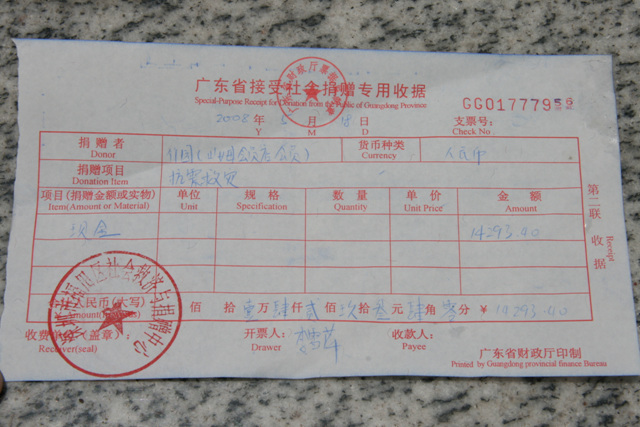 广东省接受社会捐赠专用收据
Special-Purpose Receipt for Donation from the Public of Guangdong Province
GG01777955
2008 年 月 18 日 支票号:
Y M D Check No.
捐赠者 货币种类 人民币
Donor Currency
捐赠项目 抗震救灾
Donation Item
项目(捐赠金额或实物) 单位 规格 数量 单价 金额
Item(Amount or Material) Unit Specification Quantity Unit Price Amount
现金 14293.40
人民币(大写) 佰 拾 壹万肆仟贰佰玖拾叁元肆角零分 ¥ 14293.40
收费单位(盖章): 开票人: 收款人:
Receiver(seal) Drawer Payee
广东省财政厅印制
Printed by Guangdong provincial finance Bureau
第二联 收据
Receipt
区社会救济捐赠中心